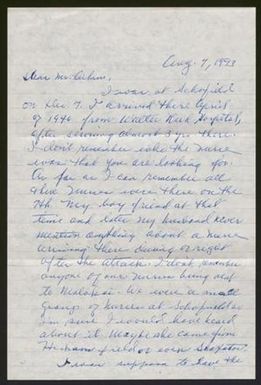 Aug. 7, 1993
Dear Mr.
I was at Schofield
on Dec 7. I arrived there April
of 1940 from Walter Reed Hospital,
after serving almost 3 yrs there.
I don't remember who the nurse
was that you are looking for.
As far as I can remember all
the nurses were there on the
7th. My boy friend at that
time and later my husband never
mention anything about a nurse
arriving there during or right
after the attack. I don't
anyone of our nurses being
to We were a small
group of nurses at Schofield so
I'm sure I would have heard
about it. Maybe she came from
Hickam field or some
I was suppose to have the